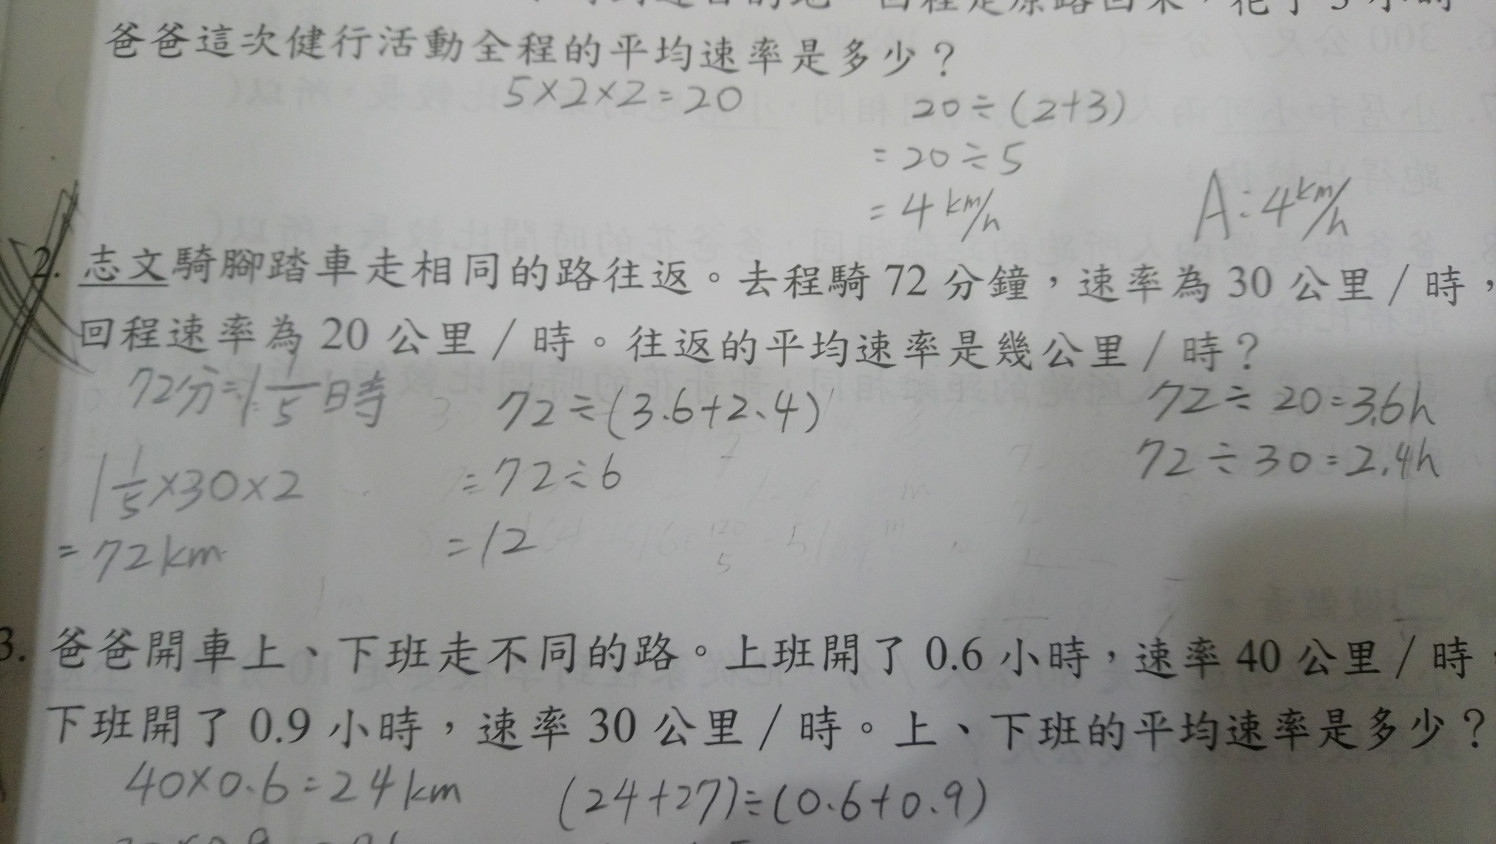 回程是原路回來,花了3小時
爸爸這次健行活動全程的平均速率是多少?
5×2×2=20
20÷(2+3)
=20÷5
=4 km/h
A:4km/h
2. 志文騎腳踏車走相同的路往返。去程騎 72 分鐘,速率為 30 公里/時,
回程速率為 20 公里/時。往返的平均速率是幾公里/時?
72分=1 1/5時
72÷(3.6+2.4)
72÷20=3.6h
72÷30=2.4h
1 1/5×30×2
=72÷6
=72km
=12
3. 爸爸開車上、下班走不同的路。上班開了 0.6 小時,速率 40 公里/時,
下班開了 0.9 小時,速率 30 公里/時。上、下班的平均速率是多少?
40×0.6=24km
(24+27)÷(0.6+0.9)